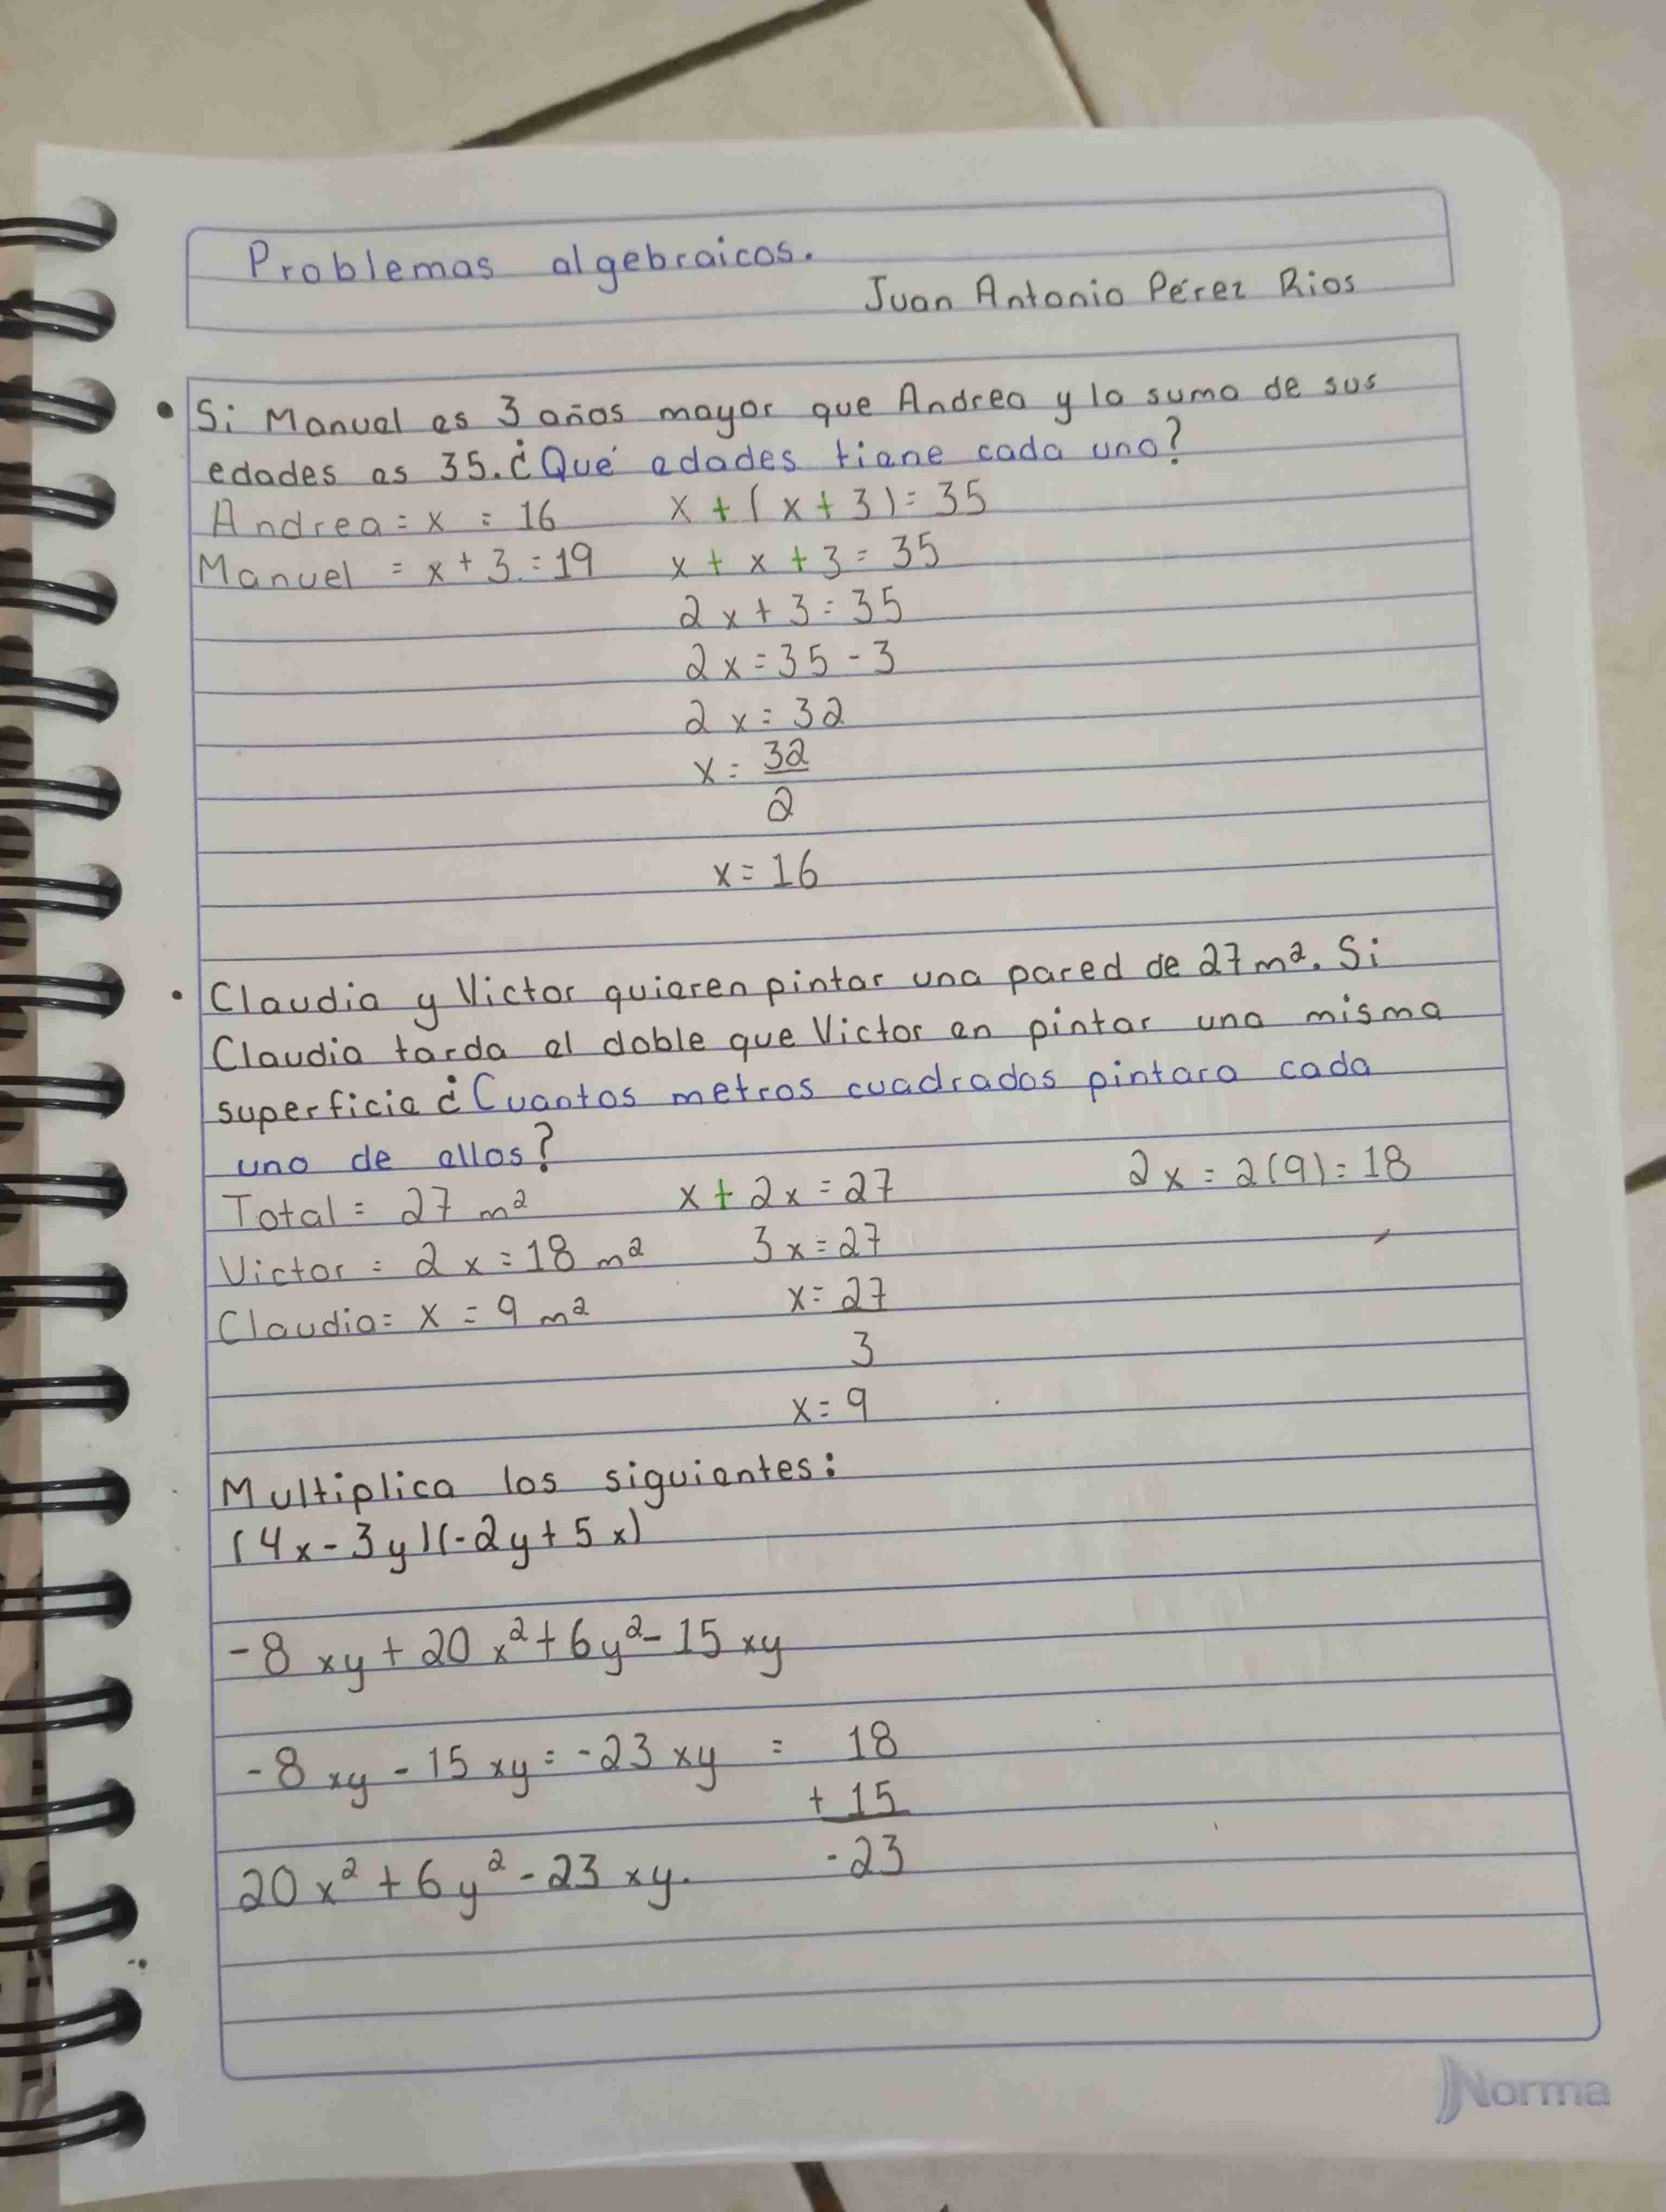 Problemas algebraicos.
Juan Antonio Pérez Rios
• Si Manuel es 3 años mayor que Andrea y la suma de sus
edades es 35. ¿Qué edades tiene cada uno?
Andrea = x = 16 x + (x + 3) = 35
Manuel = x + 3 = 19 x + x + 3 = 35
2x + 3 = 35
2x = 35 - 3
2x = 32
x = 32
2
x = 16
• Claudia y Victor quieren pintar una pared de 27 m². Si
Claudia tarda el doble que Victor en pintar una misma
superficie ¿Cuantos metros cuadrados pintara cada
uno de ellos?
Total = 27 m² x + 2x = 27 2x = 2(9) = 18
Victor = 2x = 18 m² 3x = 27
Claudia = x = 9 m² x = 27
3
x = 9
Multiplica los siguientes:
(4x - 3y)(-2y + 5x)
-8xy + 20x² + 6y² - 15xy
-8xy - 15xy = -23xy = 18
+ 15
20x² + 6y² - 23xy. -23
Norma